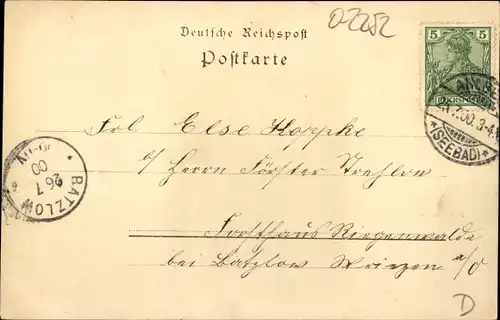 O-2252
Deutsche Reichspost
Postkarte
5 5
REICHSPOST
.7.00. 3-4
*(SEEBAD)*
Frl. Else Hoppke
b/ Herrn Förster Strehlow
Forsthaus Riegenwalde
bei Batzlow Wriezen a/O
* BATZLOW *
26 7
00
D